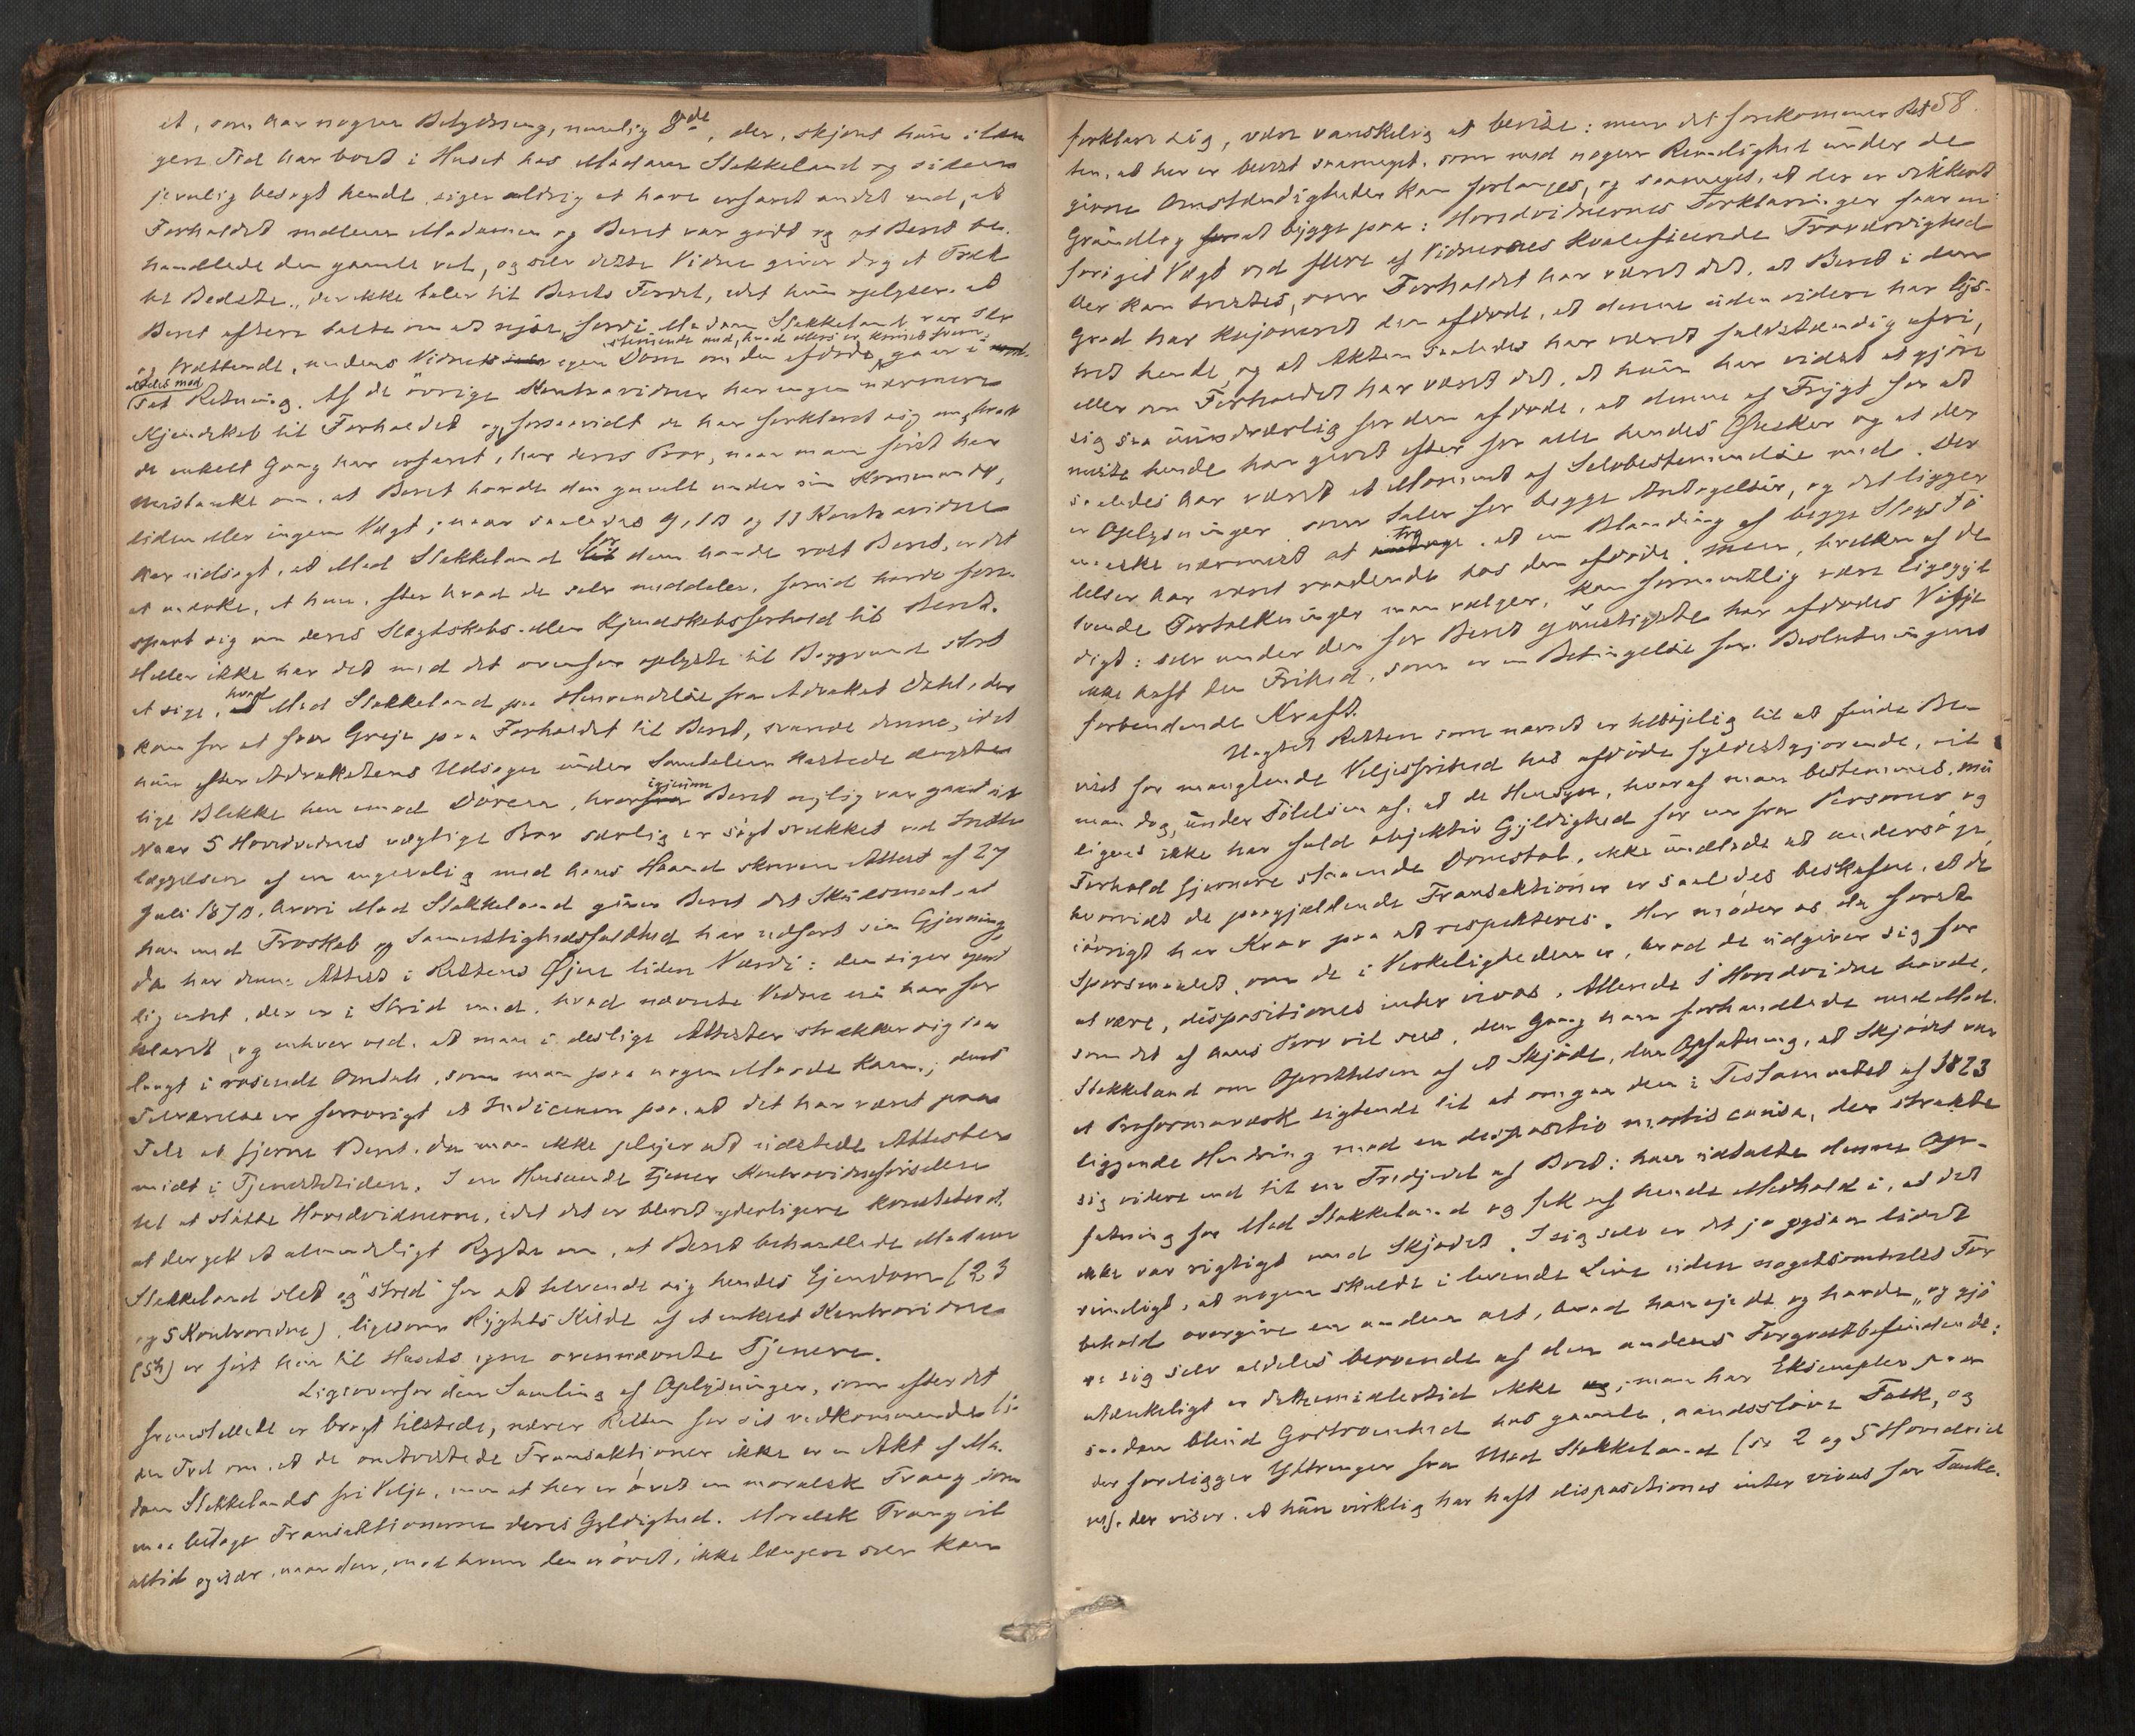 et, som har nogen Betydning, navnlig 8de, der, skjønt hun i læn
gere Tid har boet i Huset hos Madam Stakkeland og siden
jevnlig besøgt hende, siger aldrig at have erfaret andet end, at
Forholdet mellem Madamen og Beret var godt og at Beret be-
handlede den gamle vel, og selv dette Vidne giver dog et Træk
til Bedste, der ikke taler til Berets Fordel, idet hun oplyser, at
Beret oftere talte om at rejse, fordi Madam Stakkeland var saa
trættende, medens Vidnets egen Dom om den afdøde, stemmende med, hvad ellers er kommet frem, gaar i
aldeles mod
sat Retning. Af de øvrige Kontravidner har ingen nærmere
Kjendskab til Forholdet og, forsaavidt de har forklaret sig om, hvad
de enkelt Gang har erfaret, har deres Prov, naar man først har
Mistanke om, at Beret havde den gamle under sin Kommando,
liden eller ingen Vægt; naar saaledes 9, 10 og 11 Kontravidne
har udsagt, at Mad Stakkeland for dem havde rost Beret, er det
at mærke, at hun, efter hvad de selv meddeler, forud havde for-
spurt sig om deres Slægtskabs- eller Kjendskabsforhold til Beret.
Heller ikke har det med det ovenfor oplyste til Baggrund stort
at sige, hvad Mad Stakkeland paa Henvendelse fra Advokat Dahl, der
kom for at faa Greje paa Forholdet til Beret, svarede denne, idet
hun efter Advokatens Udsagn under Samtalen kastede ængste
lige Blikke hen imod Døren, hvorigjennem Beret nylig var gaaet ud
Naar 5 Hovedvidnes vægtige Prov særlig er søgt svækket ved Frem
læggelsen af en angivelig med hans Haand skreven Attest af 27
Juli 1870, hvori Mad Stakkeland giver Beret det Skudsmaal, at
hun med Troskab og Samvittighedsfuldhed har udført sin Gjerning,
da har denne Attest i Rettens Øjne liden Værdi: den siger egent
lig intet, der er i Strid med, hvad nævnte Vidne nu har for
klaret, og enhver ved, at man i deslige Attester strækker sig saa
langt i rosende Omtale, som man paa nogen Maade kan; dens
Tilværelse er forøvrigt et Indicium paa, at det har været paa
Tale at fjerne Beret, da man ikke plejer at udstede Attester
midt i Tjenestetiden. I en Henseende tjener Kontravidneførselen
til at støtte Hovedvidnerne, idet det er blevet yderligere konstateret,
at der gik et almindeligt Rygte om, at Beret behandlede Madam
Stakkeland slet og "stred" for at tilvende sig hendes Ejendom (2, 3
og 5 Kontravidne), ligesom Rygtets Kilde af et enkelt Kontravidne
(5te) er ført hen til Husets egne ovennævnte Tjenere.
Ligeoverfor den Samling af Oplysninger, som efter det
fremstillede er bragt tilstede, nærer Retten for sit vedkommende li-
den Tvil om, at de omtvistede Transaktioner ikke er en Akt af Ma-
dam Stakkelands fri Vilje, men at her er øvet en moralsk Tvang som
maa betage Transaktionerne deres Gyldighed. Moralsk Tvang vil
altid og især, naar den, mod hvem den er øvet, ikke længere selv kan
58.
forklare sig, være vanskelig at bevise: men det forekommer Ret
ten, at her er bevist saameget, som med nogen Rimelighed under de
givne Omstændigheder kan forlanges, og saameget, at der er sikkert
Grundlag at bygge paa: Hovedvidnernes Forklaringer faar en
forøget Vægt ved flere af Vidnernes kvalificerede Troværdighed
Der kan tvistes, om Forholdet har været det, at Beret i den
Grad har kujoneret den afdøde, at denne uden videre har lys-
tret hende og at Akten saaledes har været fuldstændig ufri,
eller om Forholdet har været det, at hun har vidst at gjøre
sig saa uundværlig for den afdøde, at denne af Frygt for at
miste hende har givet efter for alle hendes Ønsker og at der
saaledes har været et Moment af Selvbestemmelse med. Der
er Oplysninger som taler for begge Antagelser, og det ligger
maaske nærmest at tro, at en Blanding af begge Slags Fø
lelser har været raadende hos den afdøde. Men, hvilken af de
tvende Fortolkninger man vælger, kan formentlig være ligegyl
digt: selv under den for Beret gunstigste har afdødes Vilje
ikke haft den Frihed, som er en Betingelse for Beslutningens
forbindende Kraft.
Uagtet Retten som nævnt er tilbøjelig til at finde Be-
viset for manglende Viljesfrihed hos afdøde fyldestgjørende, vil
man dog, under Følelsen af, at de Hensyn, hvoraf man bestemmes, mu
ligens ikke har fuld objektiv Gyldighed for en fra Personer og
Forhold fjernere staaende Domstol, ikke undlade at undersøge,
hvorvidt de paagjældende Transaktioner er saaledes beskafne, at de
iøvrigt har Krav paa at respekteres. Her møder os da først
Spørsmaalet, om de i Virkeligheden er, hvad de udgiver sig for
at være, dispositiones inter vivos. Allerede 5 Hovedvidne havde,
som det af hans Prov vil sees, den Gang han forhandlede med Mad.
Stakkeland om Oprettelsen af et Skjøde, den Opfatning, at Skjødet var
et Proformaværk sigtende til at omgaa den i Testamentet af 1823
liggende Hindring mod en dispositio mortis causa, der strakte
sig videre end til en Tredjedel af Boet: han udtalte denne Op-
fatning for Mad Stakkeland og fik af hende Medhold i, at det
ikke var rigtigt med Skjødet. I sig selv er det jo ogsaa lidet
rimeligt, at nogen skulde i levende Live uden nogetsomhelst For
behold overgive en anden alt, hvad han ejede og havde, og gjø
re sig selv aldeles beroende af den andens Forgodtbefindende;
utænkeligt er dette imidlertid ikke; man har Eksempler paa
saadan blind Godtroenhed hos gamle, aandssløve Folk, og
der foreligger Yttringer fra Mad Stakkeland (se 2 og 5 Hovedvid
ne), der viser, at hun virkelig har haft dispositiones inter vivos for Tanke.